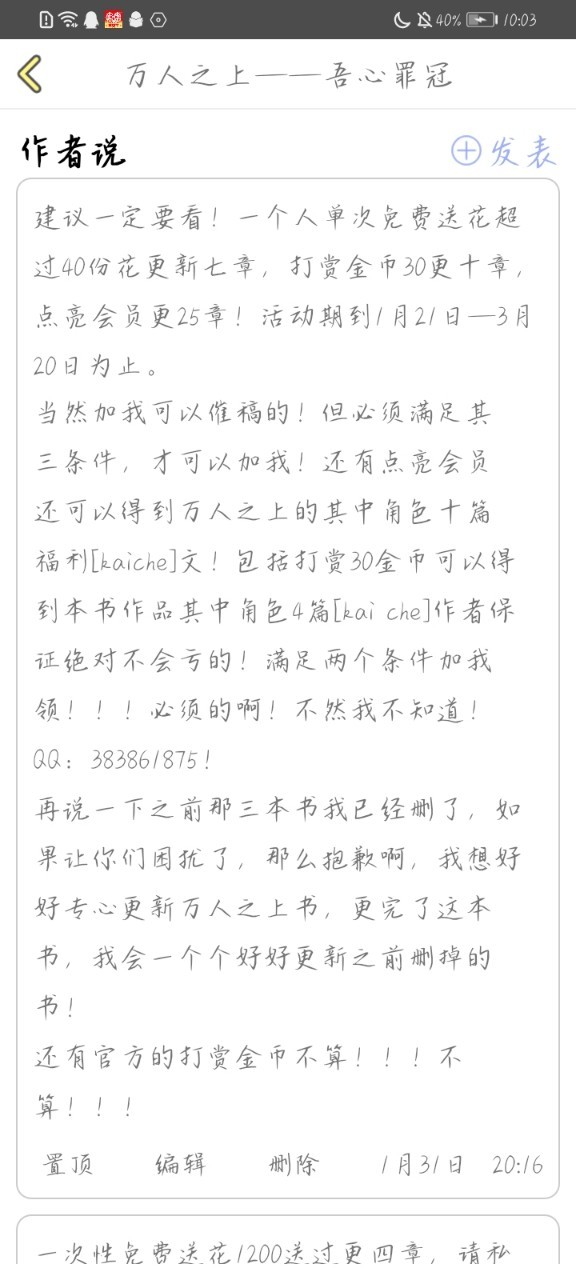 40% 10:03
万人之上——吾心罪冠
作者说
发表
建议一定要看！一个人单次免费送花超
过40份花更新七章，打赏金币30更十章，
点亮会员更25章！活动期到1月21日—3月
20日为止。
当然加我可以催稿的！但必须满足其
三条件，才可以加我！还有点亮会员
还可以得到万人之上的其中角色十篇
福利[kaiche]文！包括打赏30金币可以得
到本书作品其中角色4篇[kai che]作者保
证绝对不会亏的！满足两个条件加我
领！！！必须的啊！不然我不知道！
QQ：383861875！
再说一下之前那三本书我已经删了，如
果让你们困扰了，那么抱歉啊，我想好
好专心更新万人之上书，更完了这本
书，我会一个个好好更新之前删掉的
书！
还有官方的打赏金币不算！！！不
算！！！
置顶 编辑 删除 1月31日 20:16
一次性免费送花1200送过更四章，请私